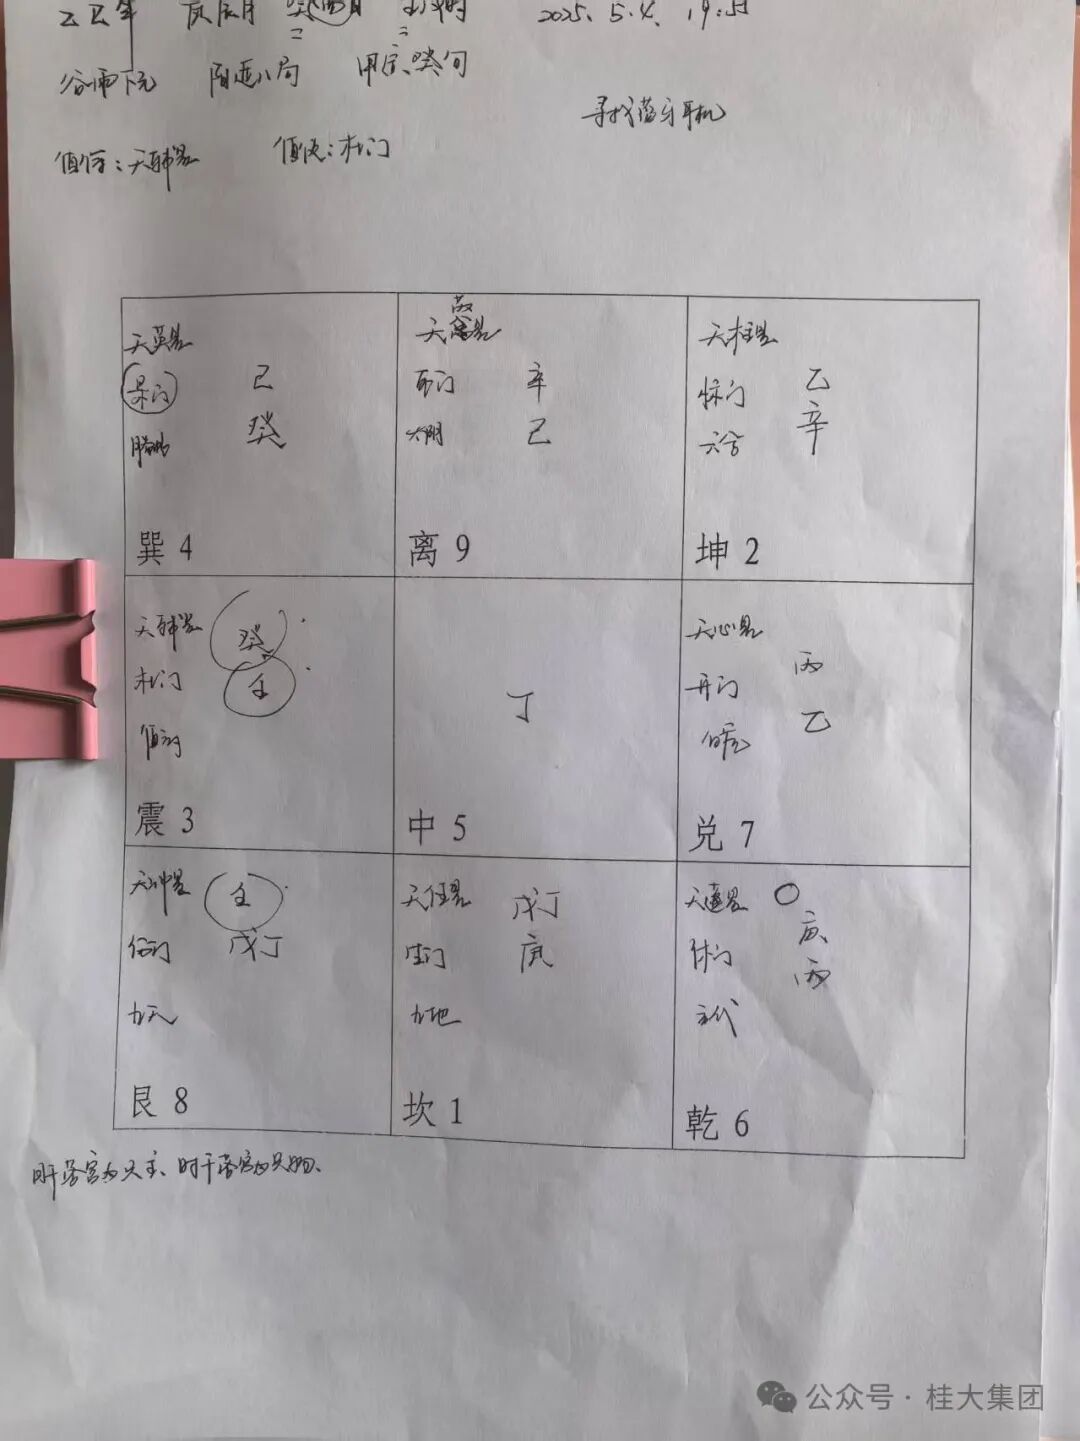 乙巳年 庚辰月 癸酉日 壬戌时 2025. 5. 4. 19:51
谷雨下元 阳遁八局 甲寅癸旬
寻找蓝牙耳机
值符：天辅星 值使：杜门
天英星
景门 己
螣蛇 癸
巽 4
天禽星
死门 辛
太阴 己
离 9
天柱星
惊门 乙
六合 辛
坤 2
天辅星 癸
杜门 壬
值符
震 3
丁
中 5
天心星 丙
开门 乙
白虎
兑 7
天冲星 壬
伤门 戊丁
九天
艮 8
天任星 戊丁
生门 庚
九地
坎 1
天蓬星 〇
庚
休门 丙
玄武
乾 6
日干落宫为失主、时干落宫为失物、
公众号 · 桂大集团